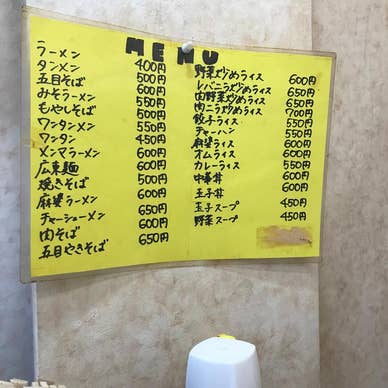 MENU
ラーメン 400円
タンメン 500円
五目そば 600円
みそラーメン 550円
もやしそば 500円
ワンタンメン 550円
ワンタン 450円
メンマラーメン 600円
広東麺 600円
焼きそば 500円
麻婆ラーメン 600円
チャーシューメン 650円
肉そば 600円
五目やきそば 650円
野菜炒めライス 600円
レバニラ炒めライス 650円
肉野菜炒めライス 650円
肉ニラ炒めライス 700円
餃子ライス 550円
チャーハン 550円
麻婆ライス 600円
オムライス 600円
カレーライス 550円
中華丼 600円
玉子丼 600円
玉子スープ 450円
野菜スープ 450円